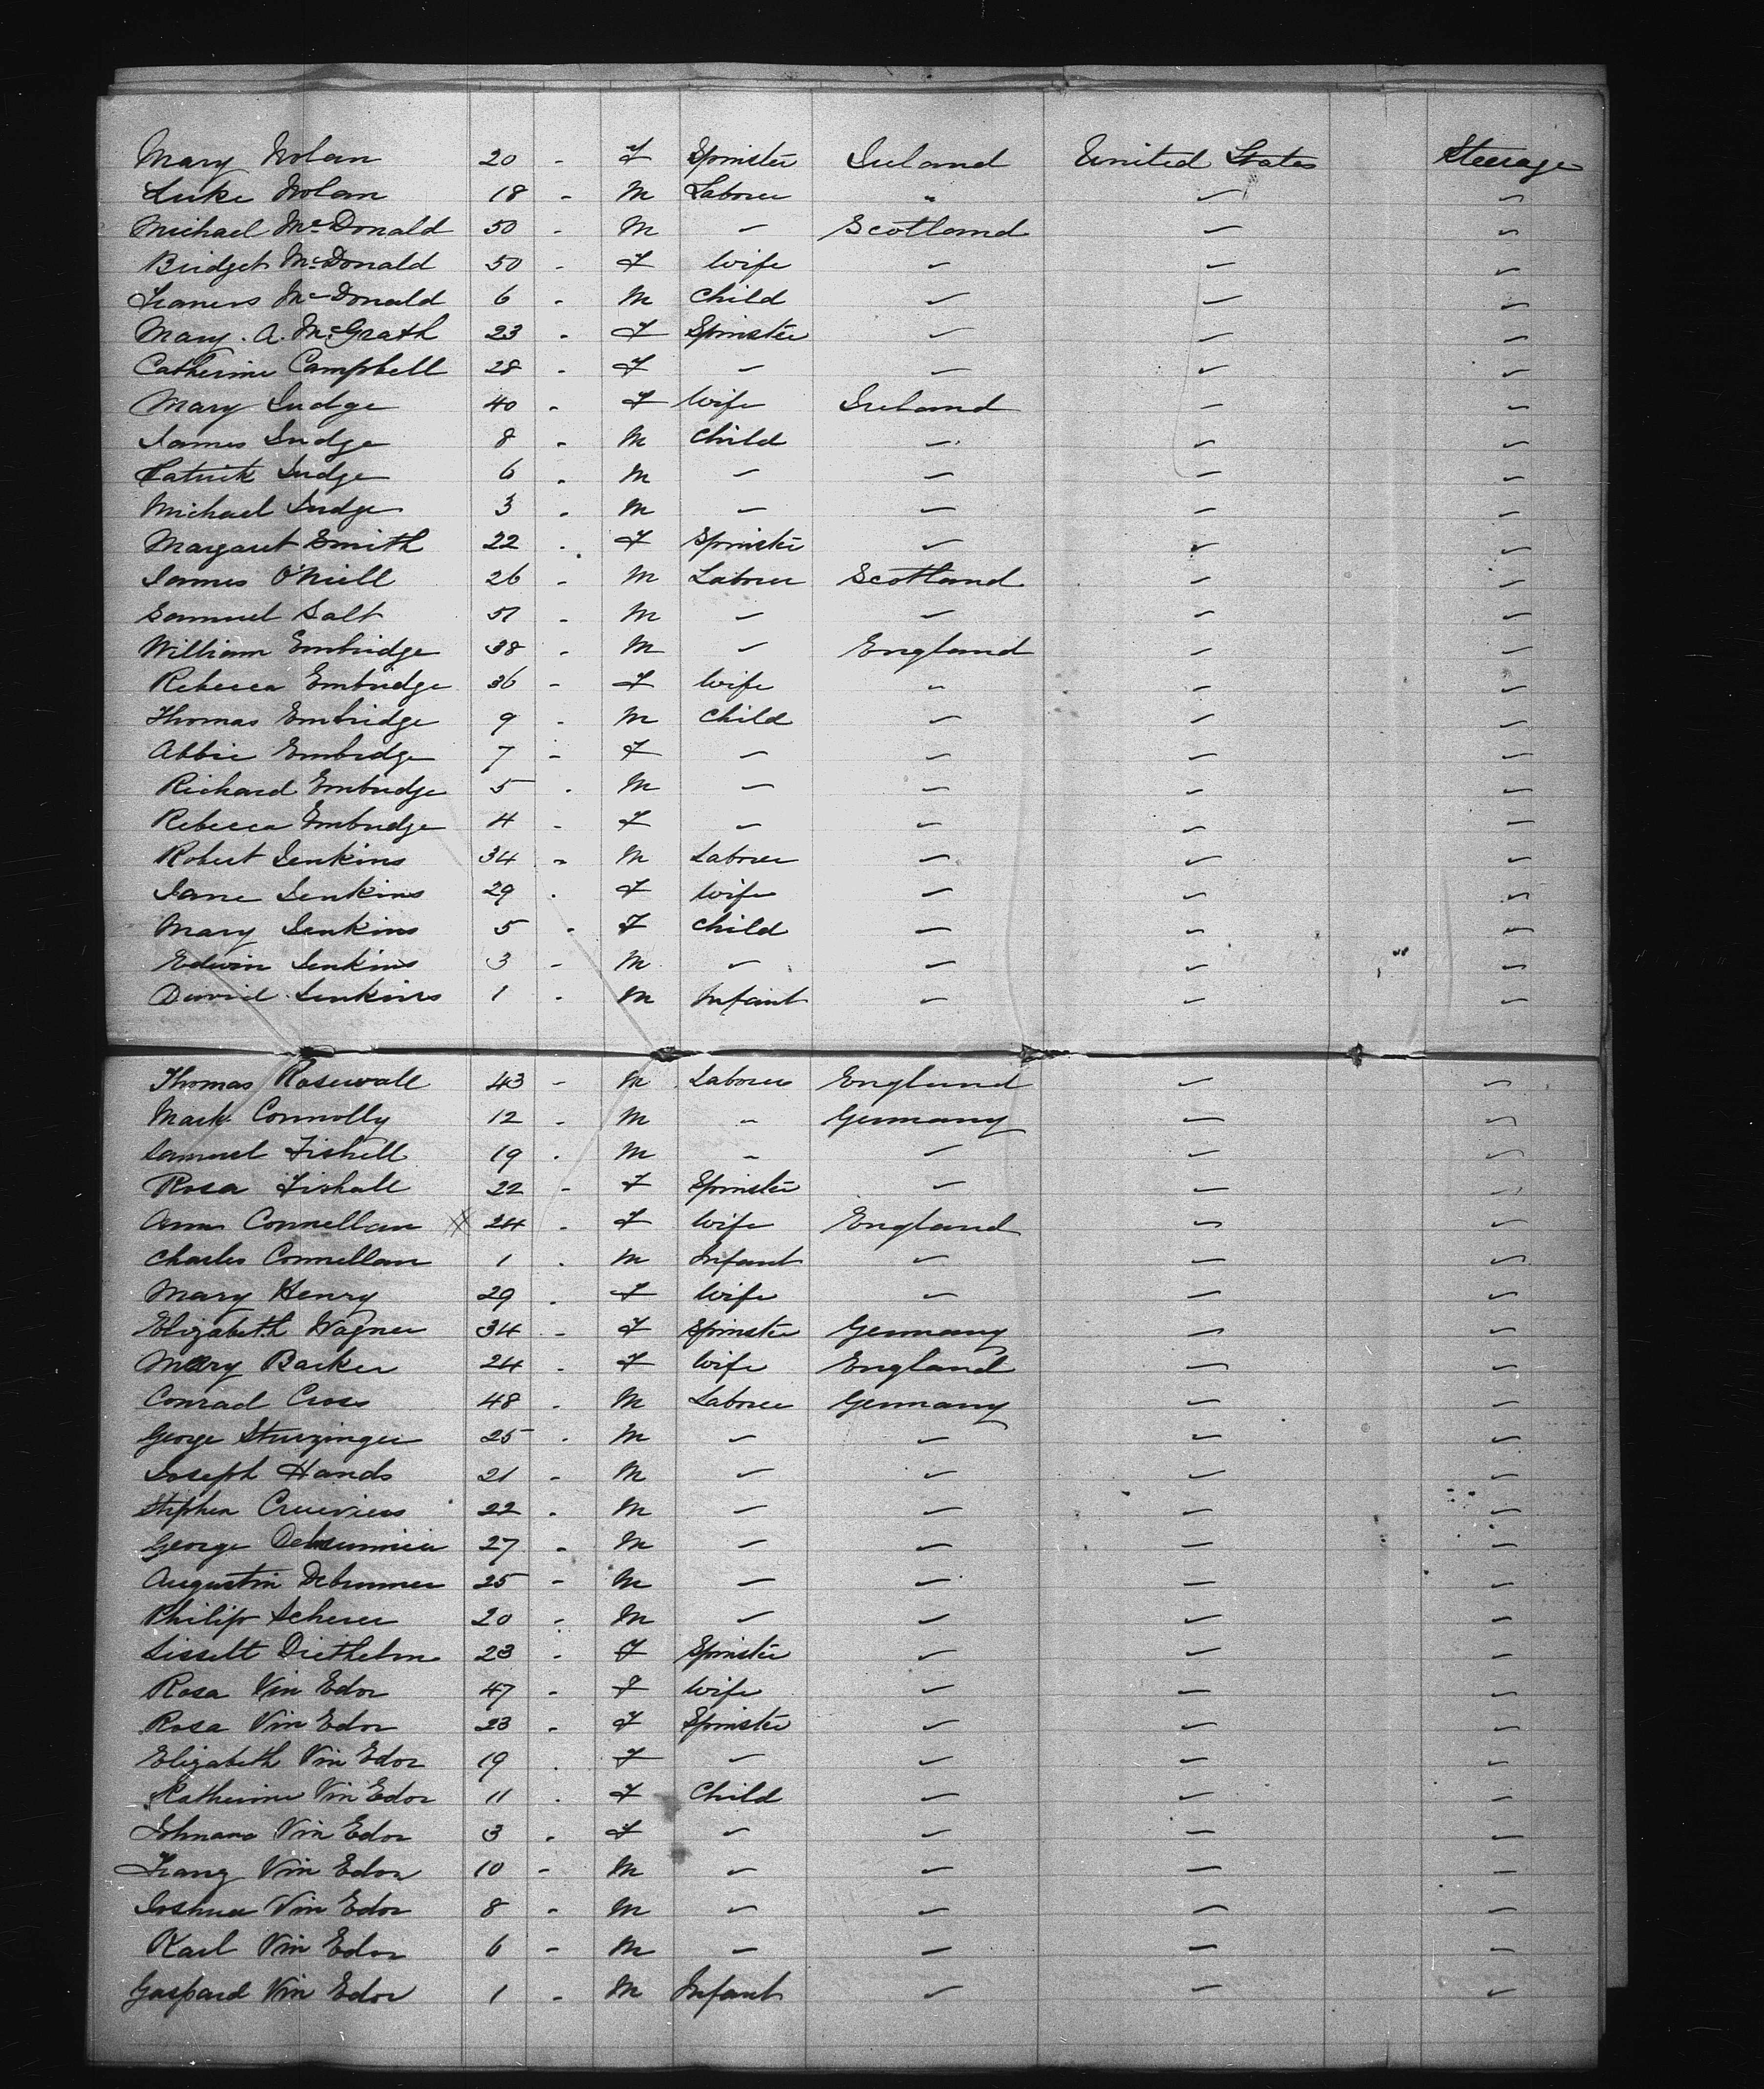 Mary Nolan 20 - F Spinster Ireland United States Steerage
Luke Nolan 18 - M Laborer " " "
Michael McDonald 50 - M " Scotland " "
Bridget McDonald 50 - F Wife " " "
Francis McDonald 6 - M Child " " "
Mary. A. McGrath 23 - F Spinster " " "
Catherine Campbell 28 - F " " " "
Mary Judge 40 - F Wife Ireland " "
James Judge 8 - M Child " " "
Patrick Judge 6 - M " " " "
Michael Judge 3 - M " " " "
Margaret Smith 22 - F Spinster " " "
James O'Niell 26 - M Laborer Scotland " "
Samuel Salt - M " " " "
William Embridge 38 - M " England " "
Rebecca Embridge 36 - F Wife " " "
Thomas Embridge 9 - M Child " " "
Abbie Embridge 7 - F " " " "
Richard Embridge 5 - M " " " "
Rebecca Embridge 4 - F " " " "
Robert Jenkins 34 - M Laborer " " "
Jane Jenkins 29 - F Wife " " "
Mary Jenkins 5 - F Child " " "
Edwin Jenkins 3 - M " " " "
David Jenkins 1 - M Infant " " "
Thomas Rosewall 43 - M Laborer England " "
Mark Connolly 12 - M " Germany " "
Samuel Fishell 19 - M " " " "
Rosa Fishall 22 - F Spinster " " "
Ann Connellan X 24 - F Wife England " "
Charles Connellan 1 - M Infant " " "
Mary Henry 29 - F Wife " " "
Elizabeth Wagner 34 - F Spinster Germany " "
Mary Barker 24 - F Wife England " "
Conrad Cross 48 - M Laborer Germany " "
George Sturzinger 25 - M " " " "
Joseph Hands 21 - M " " " "
Stephen 22 - M " " " "
George 27 - M " " " "
Augustin Debrunner 25 - M " " " "
Philip Scherer 20 - M " " " "
Lissett Diethelm 23 - F Spinster " " "
Rosa Vin Edor 47 - F Wife " " "
Rosa Vin Edor 23 - F Spinster " " "
Elizabeth Vin Edor 19 - F " " " "
Katherine Vin Edor 11 - F Child " " "
Johnana Vin Edor 3 - F " " " "
Franz Vin Edor 10 - M " " " "
Joshua Vin Edor 8 - M " " " "
Karl Vin Edor 6 - M " " " "
Gaspard Vin Edor 1 - M Infant " " "